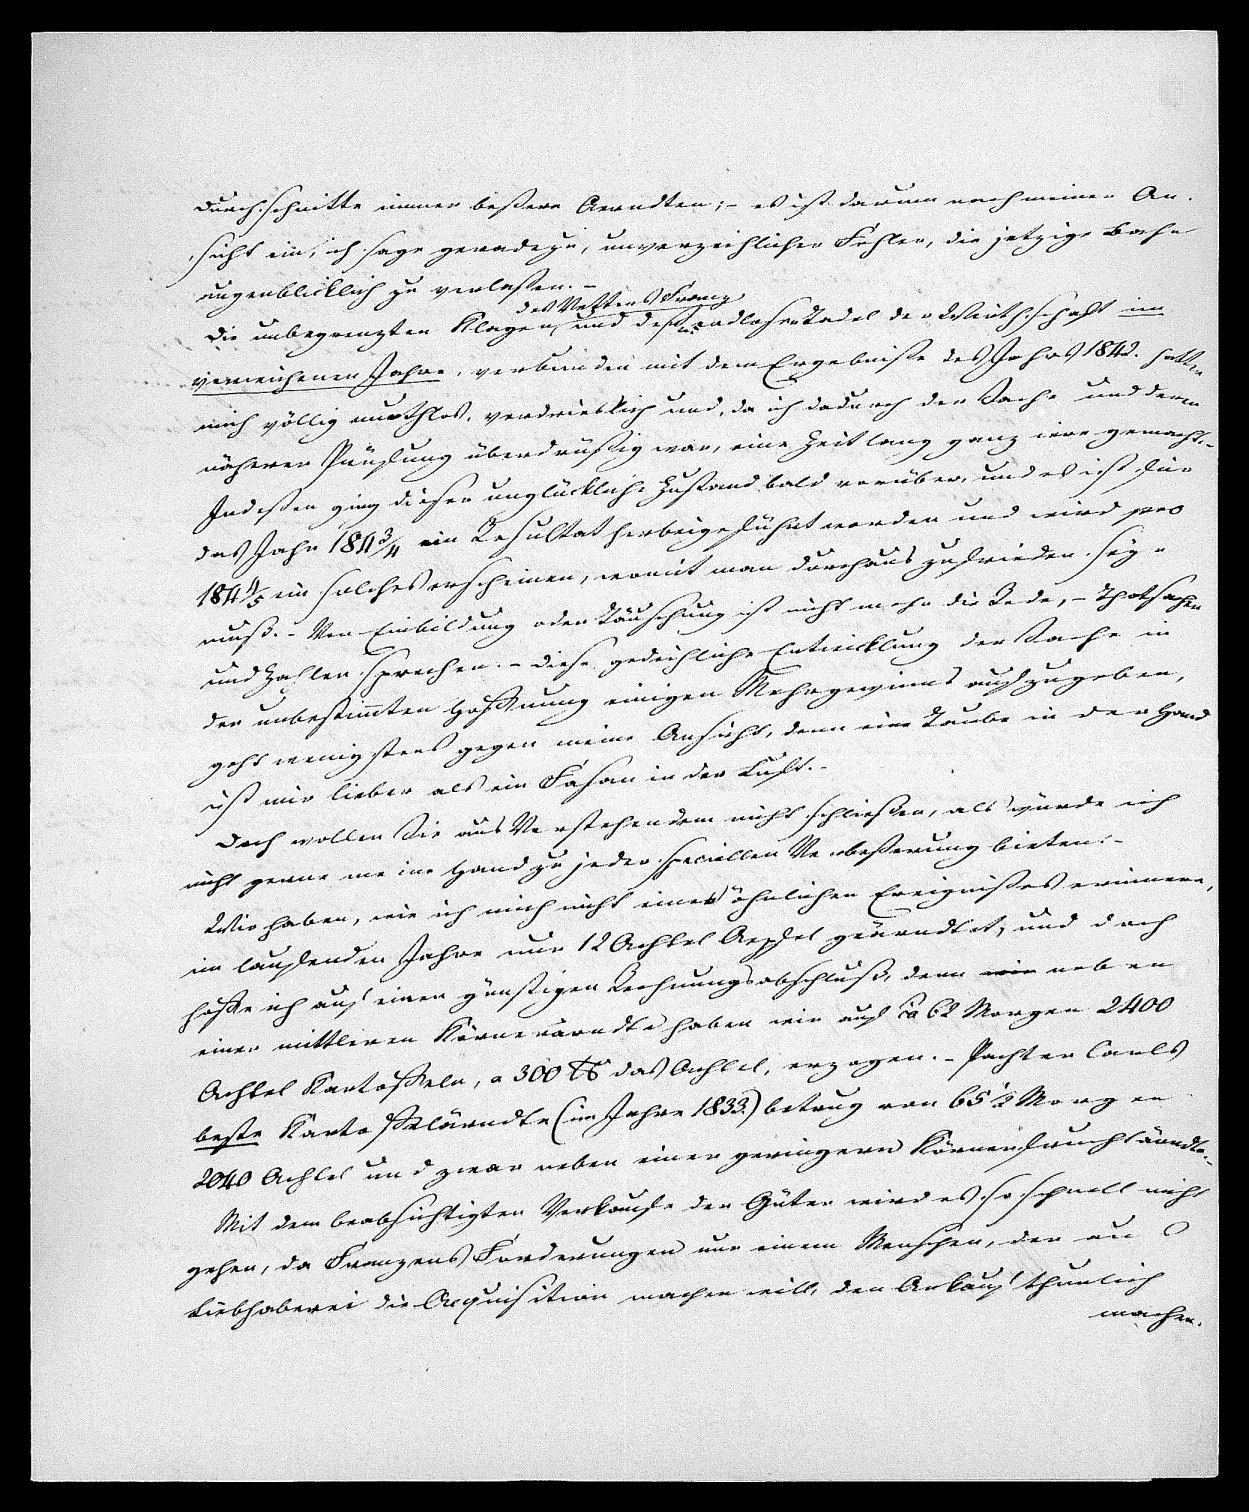 durchschnitte immer beßere Aerndten; – es ist darum nach meiner An-
sicht ein, ich sage geradezu, unverzeihlicher Fehler, die jetzige Bahn
augenblicklich zu verlaßen. –
des Vetters Franz
Die unbegrenzten Klagen und deßen endloser Tadel der Wirthschaft im
verwichenen Jahre, verbunden mit dem Ergebniße des Jahrs 1842. hatten
mich völlig muthlos, verdrieslich und, da ich dadurch der Sache und deren
näheren Prüfung überdrüßig war, eine Zeitlang ganz irre gemacht. –
Indeßen ging dieser unglückliche Zustand bald vorüber, und es ist für
das Jahr 184 3/4 ein Resultat herbeigeführt worden und wird pro
184 4/5 ein solches erscheinen, womit man durchaus zufrieden seyn
muß. – Von Einbildung oder Täuschung ist nicht mehr die Rede, – Thatsachen
und Zahlen sprechen. – Diese gedeihliche Entwicklung der Sache in
der unbestimten Hoffnung einigen Mehrgewinns aufzugeben,
geht wenigstens gegen meine Ansicht, denn eine Taube in der Hand
ist mir lieber als ein Fasan in der Luft. –
Doch wollen Sie aus Vorstehendem nicht schließen, als würde ich
nicht gerne meine Hand zu jeder speciellen Verbeßerung bieten. –
Wir haben, wie ich mich nicht eines ähnlichen Ereignißes erinnere,
im laufenden Jahre nur 12 Achtel Aepfel geärndtet, und doch
hoffe ich auf einen günstigen Rechnungsabschluß, denn wir neben
einer mittleren Körnerärndte haben wir auf ca 62 Morgen 2400
Achtel Kartoffeln, a 300 ℔ das Achtel, erzogen. – Pachter Carls
beste Kartoffelärndte (im Jahre 1833.) betrug von 65 1/2 Morgen
2040 Achtel und zwar neben einer geringern Körnerfruchtärndte. –
Mit dem beabsichtigten Verkaufe der Güter wird es so schnell nicht
gehen, da Franzens Forderungen nur einem Menschen, der aus
Liebhaberei die Acquisition machen will, den Ankauf thunlich
machen.